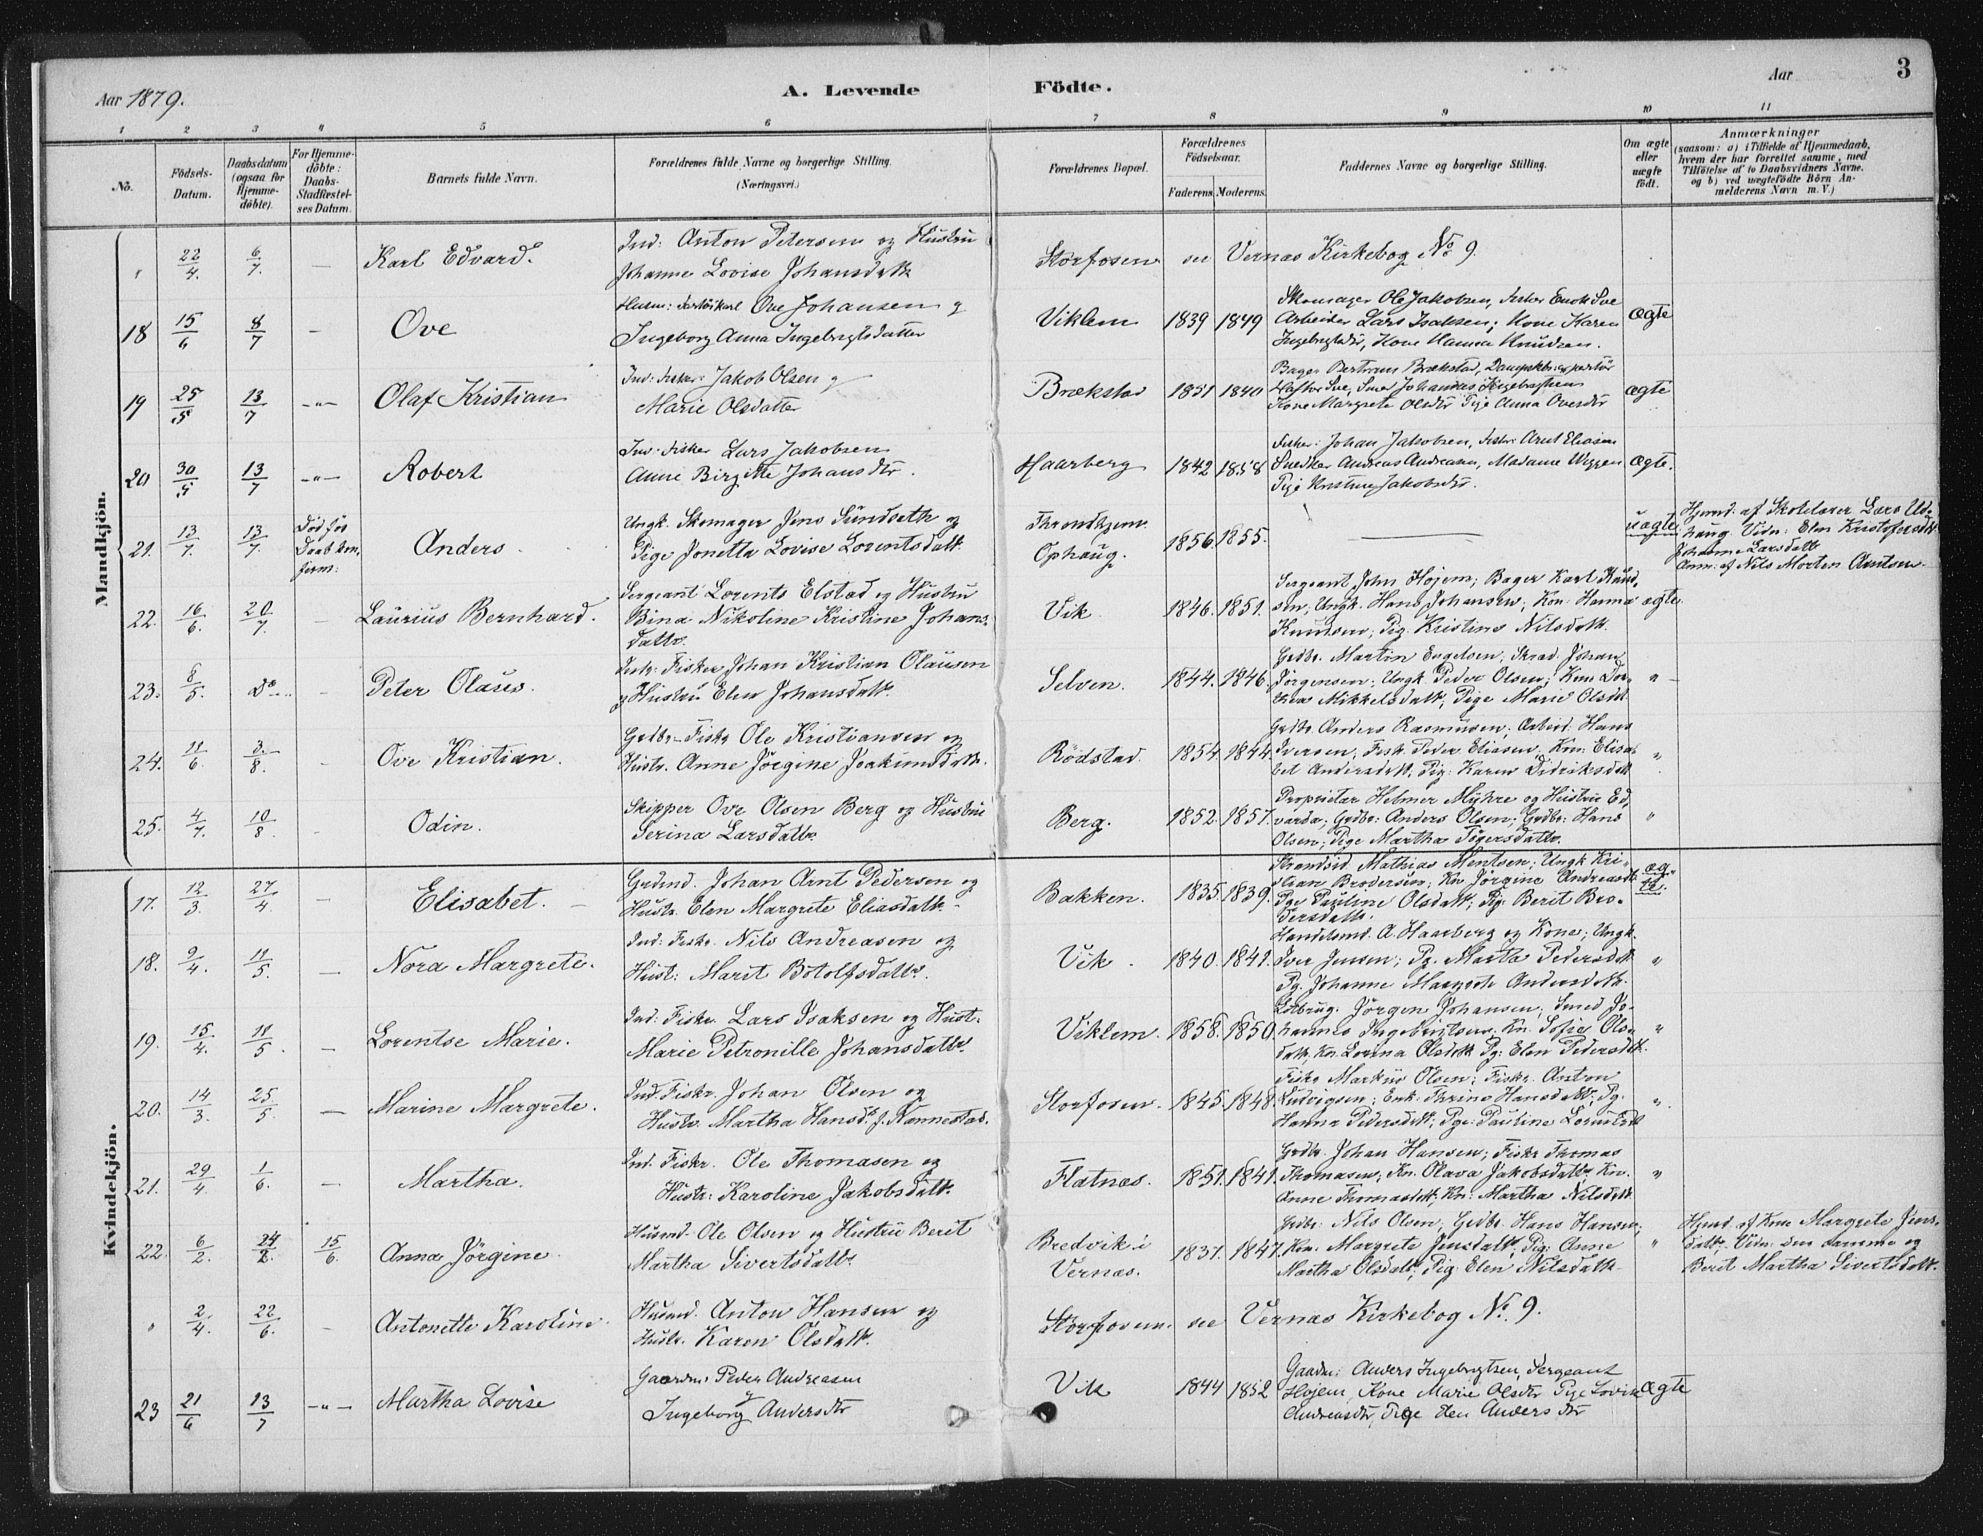 Aar 1879.
A. Levende Födte.
Aar
3
1 2 3 4 5 6 7 8 9 10 11
No.
Födsels-Datum.
Daabsdatum (ogsaa for Hjemme-döbte).
For Hjemme-döbte: Daabs-Stadfæstel-ses Datum.
Barnets fulde Navn.
Forældrenes fulde Navne og borgerlige Stilling. (Næringsvei.)
Forældrenes Bopæl.
Forældrenes Födselsaar.
Faderens. Moderens.
Faddernes Navne og borgerlige Stilling.
Om ægte eller uægte födt.
Anmærkninger
(saasom: a) i Tilfælde af Hjemmedaab,
hvem der har forrettet samme, med
Tilföielse af to Daabsvidners Navne,
og b) ved uægtefödte Börn An-
melderens Navn m. V.)
Mandkjön.
" 22/4 6/7 — Karl Edvard. Ind: Anton Petersen og Hustru
Johanne Lovise Johansdatt Storfosen see Vernæs Kirkebog No 9.
18 15/6 8/7 - Ove Ove Johansen og
Ingeborg Anna Ingebrigtsdatter Viklem 1839 1849 Skomager Ole Jakobsen,
Arbeider Lars Isaksen; Kone Karen
Ingebrigtsdtr, Kone Hanna Knudsen. Ægte
19 25/5 13/7 -"- Olaf Kristian Ind: Fisker: Jakob Olsen og
Marie Olsdatter Brækstad 1851 1840 Bager Bertram Brækstad,
Johannes Ingebrigtsen
Kone Margrete Olsdtr Pige Anna Ovesdtr ægte
20 30/5 13/7 -"- Robert Ind: Fisker Lars Jakobsen
Anne Birgitte Johansdtr. Haarberg 1842 1858 Fisker: Johan Jakobsen, Fisker: Arnt Eliasen
Snedker Andreas Andreasen, Madame Wiggen
Pige Jakobsdtr. ægte.
21. 13/7. 13/7 Død før Daab kon firm: Anders. Ungk. Skomager Jens Sundseth og
Pige Jonetta Lovise Lorentsdatt. Throndhjem. Ophaug. 1856. 1855. — uægte Hjemd. af Skolelærer Lars Ud-
haug. Vidn: Elen Kristofersdtt
Johanna Larsdatt
Anm: af Nils Morten Arntsen.
22. 16/6. 20/7. - Laurius Bernhard. Sergeant Lorents Elstad og Hustru
Bina Nikoline Kristine Johans-
datter. Vik. 1846. 1851. Sergeant John Højem; Bager Karl Knud-
sen; Ungk. Hans Johansen; Kon. Hanna
Knudsen; Pig. Kristine Nilsdatt. ægte.
23. 8/5. Do - Peter Olaus. Fisker Johan Kristian Olausen
og Hustru Elen Johansdatt. Selven. 1844. 1846. Grdbr. Martin Engelsen; Johan
Jørgensen; Ungk. Peder Olsen;
Mikkelsdatt; Pige Marie Olsdt. "
24. 11/6. 3/8. - Ove Kristian. Grdbr- Fiskr Ole Kristiansen og
Hustr. Anne Jørgine Joakimsdatt. Rödstad. 1854. 1844. Grdbr Anders Rasmusen; Arbeid. Hans
Iversen, Fisk. Peder Eliasen, Kon. Elisa-
bet Andersdatt, Pig: Karen Didriksdatt "
25. 4/7. 10/8. - Odin. Skipper Ove Olsen Berg og Hustru
Serina Larsdatter. Berg. 1852. 1857. Proprietær Helmer Myhre og Hustru Ed-
varda; Grdbr: Anders Olsen; Grdbr: Hans
Olsen; Pige Martha Tögersdatter. "
Kvindekjön.
17. 12/3. 27/4. - Elisabet. Grdmd. Johan Arnt Pedersen og
Hustr. Elen Margrete Eliasdatt. Bakken. 1835. 1839. Strandsid. Mathias Mentsen; Ungk. Kri-
stian Brodersen; Kn. Jörgine Andreasdtt
Pge Pauline Olsdatt; Pig. Berit Bro-
dersdatt. æg-te.
18. 9/4. 11/5. - Nora Margrete. Ind: Fiskr. Nils Andreasen og
Hust: Marit Botolfsdatter. Vik. 1840. 1841. Handelsmd. A. Haarberg og Kone; Ungk.
Iver Jensen; Pg. Marta Pedersdtt
Pg. Johanne Margrete Andersdtt. "
19. 15/4. 11/5. - Lorentse Marie. Ind: Fiskr. Lars Isaksen og Hust.
Marie Petronille Johansdatter. Viklem. 1858. 1850. Jörgen Johansen; Smed Jo-
hannes Ingebrigtsen; Kn. Sofie Ols-
datt; Kn. Lovina Olsdatt Pg: Elen Pedersdtt. "
20. 14/3. 25/5. - Marine Margrete. Ind. Fiskr. Johan Olsen og
Hustr. Martha Hansdt f. Nannestad. Storfosen. 1845. 1848. Fiskr Markus Olsen; Fiskr. Anton
Ludvigsen; Enk. Thrine Hansdatt; Pg.
Hanna Pedersdatt; Pge: Pauline "
21. 29/4. 1/6. - Martha. Ind. Fiskr. Ole Thomasen og
Hustr: Karoline Jakobsdatt. Flatnæs. 1851. 1841. Grdbr. Johan Hansen; Fiskr Thomas
Thomasen; Kn. Olava Jakobsdatter Kn.
Anne Thomasdatt; Kn: Martha Nilsdatt. "
22. 6/2. 24/2. 15/6. Anna Jörgine. Husmd. Ole Olsen og Hustru Berit
Martha Sivertsdatter. Bredvik i Vernæs. 1831. 1847. Grdbr. Nils Olsen; Grdbr. Hans Hansen;
Kon. Margrete Jensdatt; Pig: Anne
Martha Olsdatt; Pig: Elen Nilsdatt. " Hjemd. af Kone Margrete Jens-
datt. Vidn: den samme og
Berit Martha Sivertsdatt.
" 2/4. 22/6. - Antonette Karoline. Husmd. Anton Hansen og
Hustr. Karen Olsdatt. Storfosen. see Vernæs Kirkebog No. 9.
23 21/6 13/7 -"- Martha Lovise Gaardm: Peder Andreasen
og Ingeborg Andersdtr Vik 1844 1852 Gaardm: Anders Ingebrigtsen, Sergeant
Højem, Kone Marie Olsdtr Pige Lovise
Andreasdtr, Pige Andersdtr Ægte